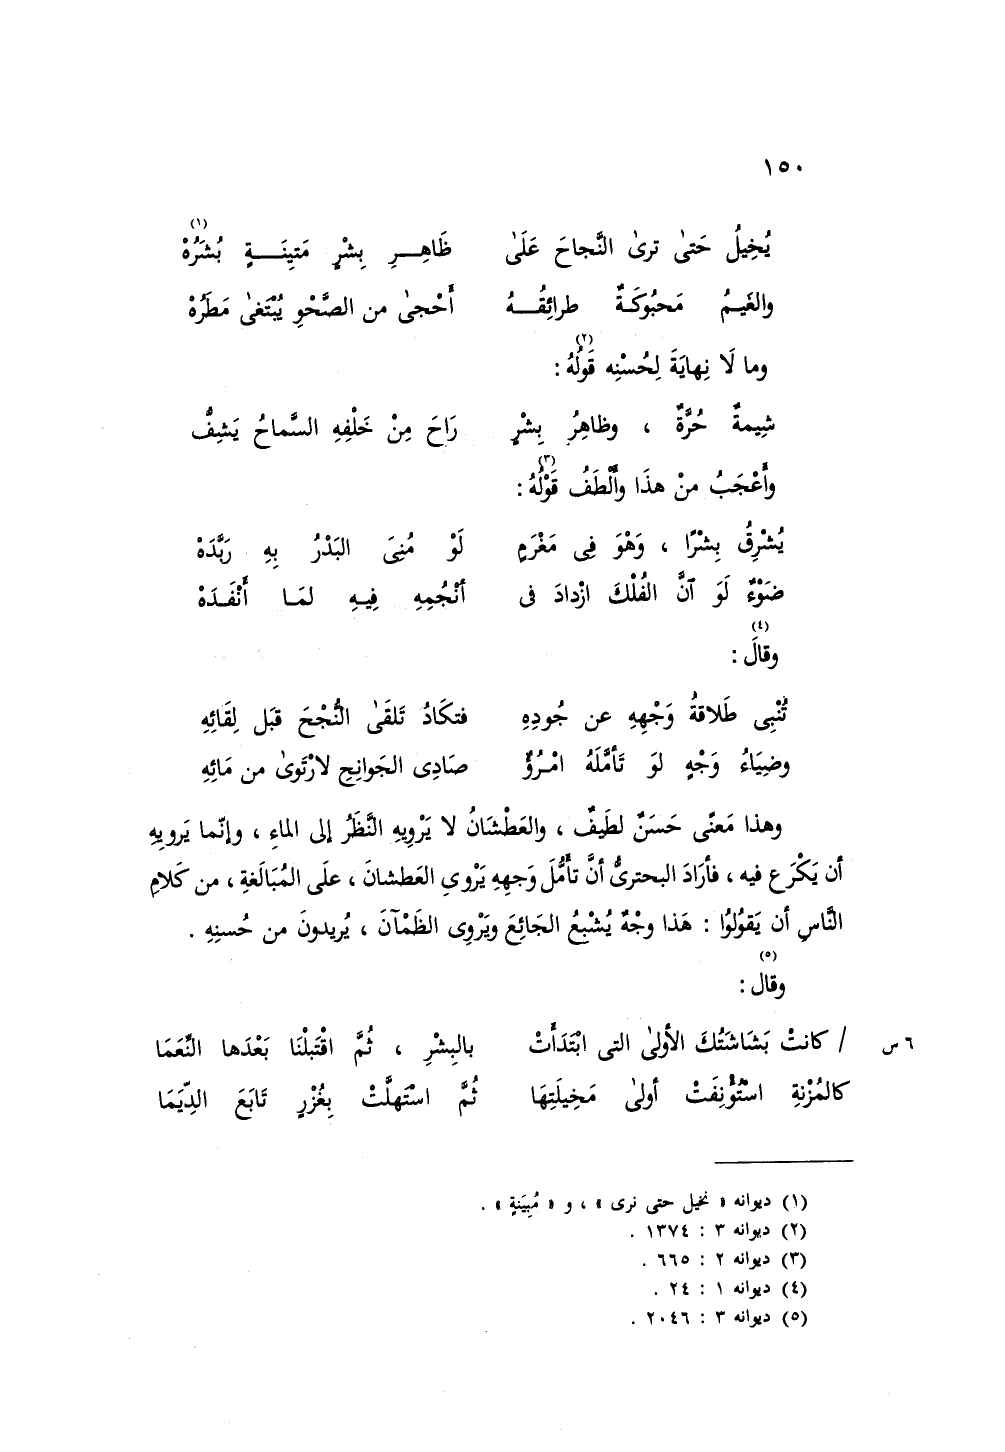 ١٥٠
يُخِيلُ حَتىٰ ترىٰ النَّجاحَ عَلَىٰ ظَاهِرِ بِشْرٍ مَتِينَةٍ بُشَرُهْ (١)
والغَيمُ مَحبُوكَةٌ طرائِقُهُ أَحْجىٰ من الصَّحْوِ يُبْتَغىٰ مَطَرُهْ
وما لَا نِهايَةَ لِحُسْنِه قَولُهُ (٢) :
شِيمةٌ حُرَّةٌ ، وظاهِرُ بِشْرٍ رَاحَ مِنْ خَلْفِهِ السَّماحُ يَشِفُّ
وأَعْجَبُ منْ هذَا وأَلْطَفُ قَوْلُهُ (٣) :
يُشْرِقُ بِشْرًا ، وَهْوَ فِى مَغْرَمٍ لَوْ مُنِىَ البَدْرُ بِهِ رَبَّدَهْ
ضَوْءٌ لَوَ آنَّ الفُلْكَ ازْدادَ فى أنْجُمِهِ فِيهِ لمَا أَنْفَدَهْ
وقالَ (٤) :
تُنْبِى طَلاقةُ وَجْهِهِ عن جُودِهِ فتكَادُ تَلقَىٰ النُّجْحَ قبَل لِقَائِهِ
وضِيَاءُ وَجْهٍ لوَ تَأمَّلَهُ امْرُؤٌ صَادِى الجَوانِحِ لارْتَوىٰ من مَائِهِ
وهذا مَعنًى حَسَنٌ لطيفٌ ، والعَطْشَانُ لا يَرْوِيهِ النَّظَرُ إلى الماءِ ، وإنّما يَرويهِ
أن يَكْرَع فيه ، فأرَادَ البحترىُّ أنَّ تأَمُّلَ وَجههِ يَرْوي العَطشانَ ، علَى المُبَالَغةِ ، من كَلامِ
النَّاسِ أن يَقولُوا : هَذا وجْهٌ يُشْبِعُ الجَائِعَ ويَرْوِى الظَمْآنَ ، يُريدونَ من حُسنِهِ .
وقال (٥) :
/ كانتْ بَشَاشَتُكَ الأولىٰ التى ابْتَدَأَتْ بالبِشْرِ ، ثُمَّ اقْتَبلْنَا بَعْدَها النِّعَمَا ٦ س
كالمُزْنةِ اسْتُؤْنِفَتْ أولىٰ مَخِيلَتِهَا ثُمَّ اسْتَهلَّتْ بِغُزْرٍ تَابَعَ الدِّيَمَا
(١) ديوانه « نخيل حتى نرى » ، و « مُبِيَنةٍ » .
(٢) ديوانه ٣ : ١٣٧٤ .
(٣) ديوانه ٢ : ٦٦٥ .
(٤) ديوانه ١ : ٢٤ .
(٥) ديوانه ٣ : ٢٠٤٦ .